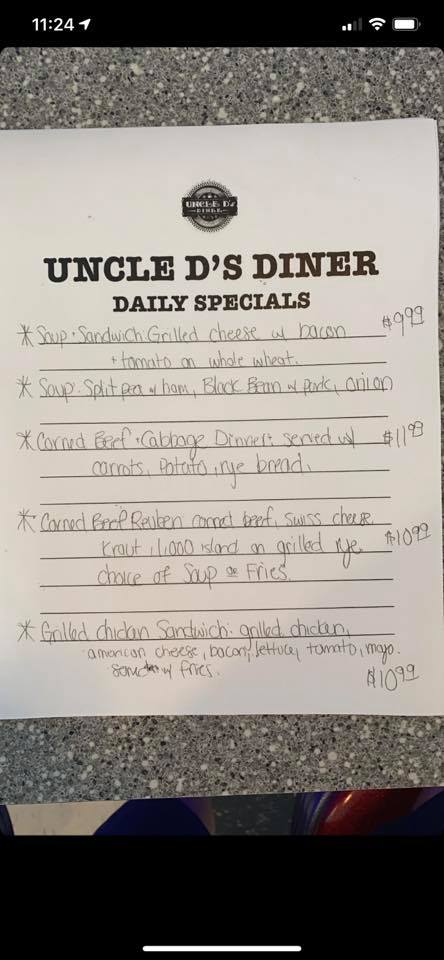 11:24
UNCLE D's
DINER
UNCLE D'S DINER
DAILY SPECIALS
* Soup + Sandwich: Grilled cheese w/ bacon $9.99
+ tomato on whole wheat.
* Soup: Split pea w/ ham, Black Bean w/ Pork, onion
* Corned Beef + Cabbage Dinner: served w/ $11.99
carrots, Potato, rye bread.
* Corned Beef Reuben corned beef, swiss cheese
Kraut, 1,000 island on grilled rye $10.99
choice of Soup or Fries.
* Grilled chicken Sandwich: grilled chicken,
american cheese, bacon, lettuce, tomato, mayo.
w/ fries. $10.99